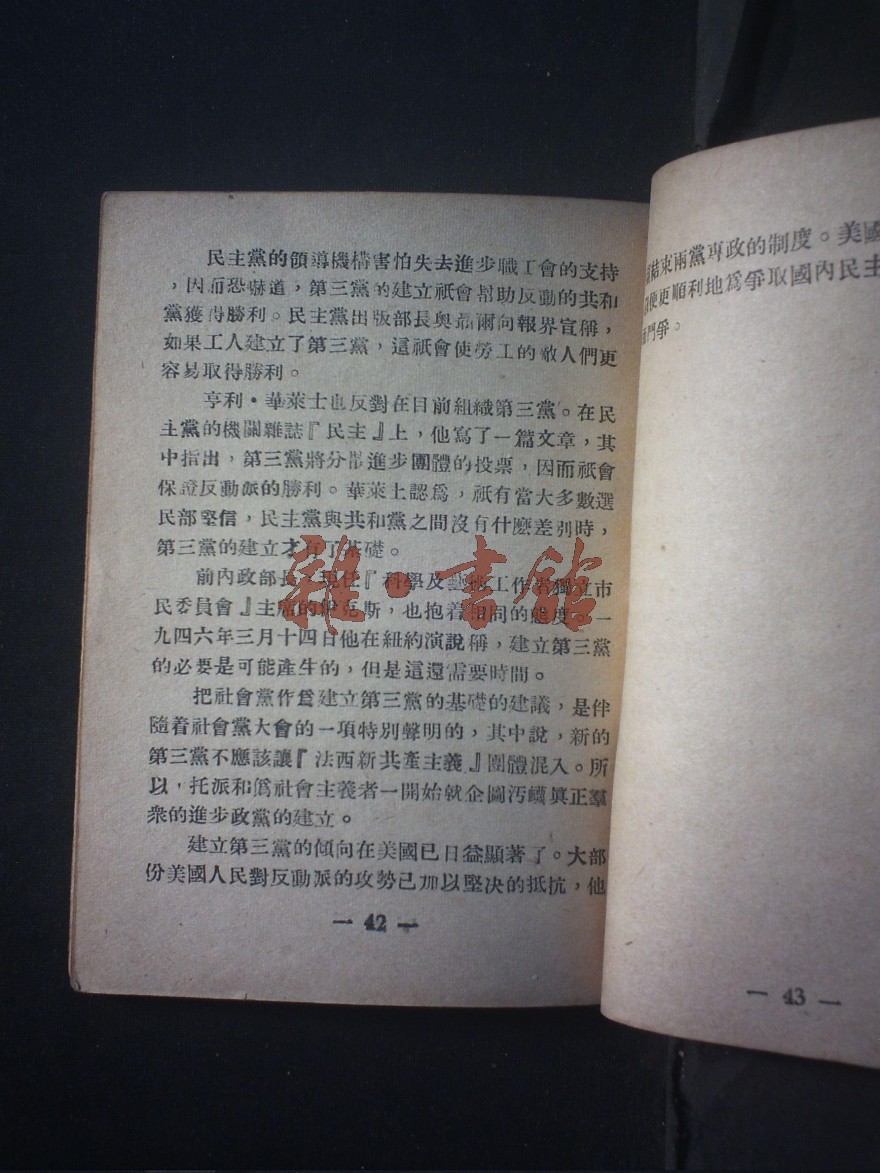 民主黨的領導機構害怕失去進步職工會的支持
，因而恐嚇道，第三黨的建立祇會幫助反動的共和
黨獲得勝利。民主黨出版部長奧 爾向報界宣稱，
如果工人建立了第三黨，這祇會使勞工的敵人們更
容易取得勝利。
亨利·華萊士也反對在目前組織第三黨。在民
主黨的機關雜誌『民主』上，他寫了一篇文章，其
中指出，第三黨將分散進步團體的投票，因而祇會
保證反動派的勝利。華萊士認爲，祇有當大多數選
民部堅信，民主黨與共和黨之間沒有什麽差別時，
第三黨的建立才有了基礎。
前內政部長，現任『科學及藝術工作者獨立市
民委員會』主席的伊克斯，也抱着相同的態度。一
九四六年三月十四日他在紐約演說稱，建立第三黨
的必要是可能產生的，但是這還需要時間。
把社會黨作爲建立第三黨的基礎的建議，是伴
隨着社會黨大會的一項特別聲明的，其中說，新的
第三黨不應該讓『法西新共產主義』團體混入。所
以，托派和僞社會主義者一開始就企圖汚衊眞正羣
衆的進步政黨的建立。
建立第三黨的傾向在美國已日益顯著了。大部
份美國人民對反動派的攻勢已加以堅决的抵抗，他
— 42 —
結束兩黨專政的制度。美國
便更順利地爲爭取國內民主
鬥爭。
— 43 —
雜·書館